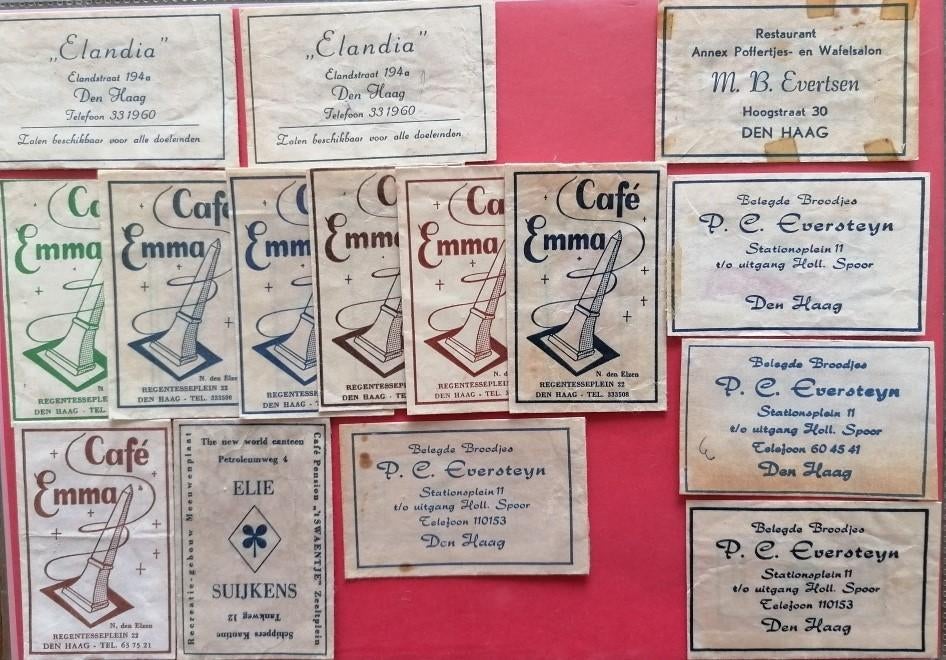 „Elandia”
Elandstraat 194a
Den Haag
Telefoon 331960
Zalen beschikbaar voor alle doeleinden
„Elandia”
Elandstraat 194a
Den Haag
Telefoon 331960
Zalen beschikbaar voor alle doeleinden
Restaurant
Annex Poffertjes- en Wafelsalon
M. B. Evertsen
Hoogstraat 30
DEN HAAG
Ca
Emma
REGENTESSEPLE
DEN HAAG - TEL.
Café
Emma
N. den Elzen
REGENTESSEPLEIN 22
DEN HAAG - TEL. 333508
Ca
Emm
REGENTESSEP
DEN HAAG - T
Ca
Emma
REGENTESSEPL
DEN HAAG - TEL
Ca
Emma
N. d
REGENTESSEPLEIN
DEN HAAG - TEL. 3
Café
Emma
N. den Elzen
REGENTESSEPLEIN 22
DEN HAAG - TEL. 333508
Belegde Broodjes
P. C. Eversteyn
Stationsplein 11
t/o uitgang Holl. Spoor
Den Haag
Belegde Broodjes
P. C. Eversteyn
Stationsplein 11
t/o uitgang Holl. Spoor
Telefoon 60 45 41
Den Haag
Café
Emma
N. den Elzen
REGENTESSEPLEIN 22
DEN HAAG - TEL. 63 75 21
Recreatie-gebouw Meeuwenplaat
The new world canteen
Petroleumweg 4
ELIE
SUIJKENS
Tankweg 12
Schippers Kantine
Café Pension „'t SWAENTJE” Zeeltplein
Belegde Broodjes
P. C. Eversteyn
Stationsplein 11
t/o uitgang Holl. Spoor
Telefoon 110153
Den Haag
Belegde Broodjes
P. C. Eversteyn
Stationsplein 11
t/o uitgang Holl. Spoor
Telefoon 110153
Den Haag